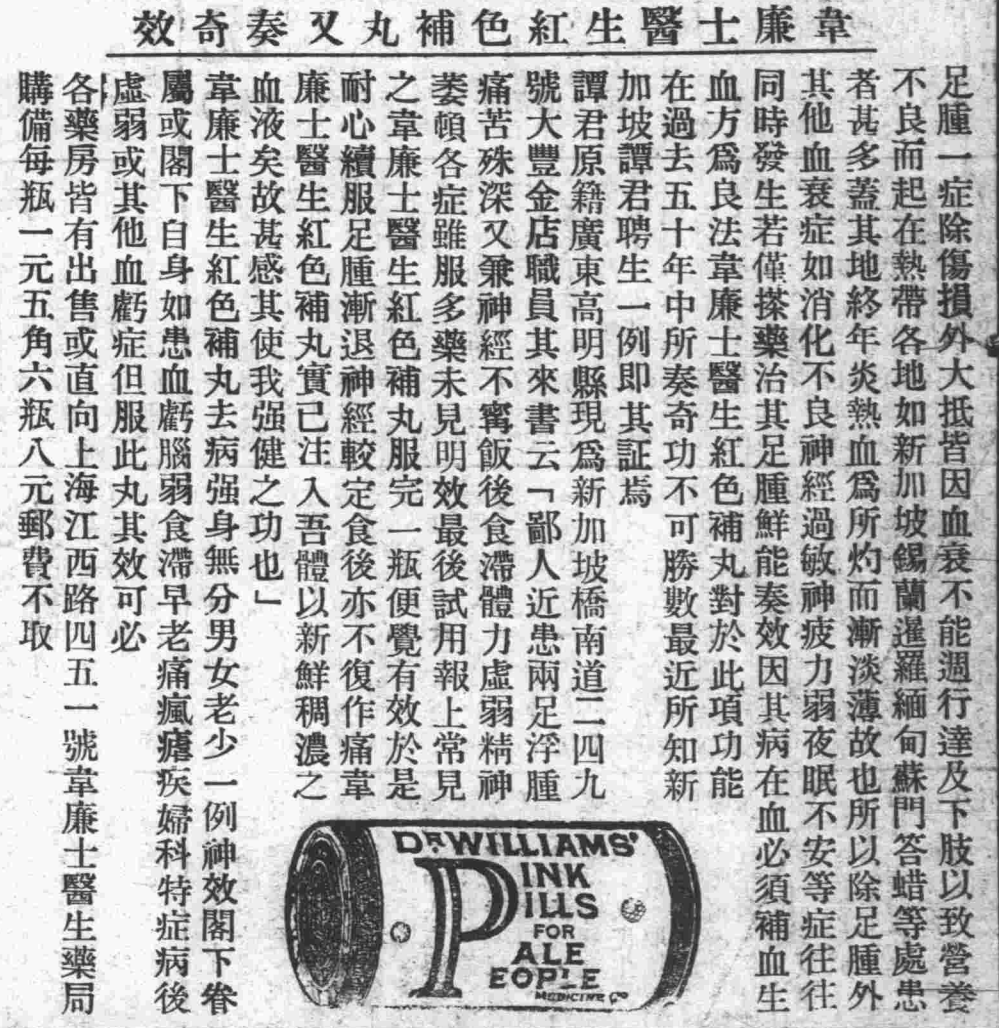 韋廉士醫生紅色補丸又奏奇效
足腫一症除傷損外大抵皆因血衰不能週行達及下肢以致營養
不良而起在熱帶各地如新加坡錫蘭暹羅緬甸蘇門答蜡等處患
者甚多蓋其地終年炎熱血爲所灼而漸淡薄故也所以除足腫外
其他血衰症如消化不良神經過敏神疲力弱夜眠不安等症往往
同時發生若僅搽藥治其足腫鮮能奏效因其病在血必須補血生
血方爲良法韋廉士醫生紅色補丸對於此項功能
在過去五十年中所奏奇功不可勝數最近所知新
加坡譚君聘生一例即其証焉
譚君原籍廣東高明縣現爲新加坡橋南道二四九
號大豐金店職員其來書云「鄙人近患兩足浮腫
痛苦殊深又兼神經不寗飯後食滯體力虛弱精神
萎頓各症雖服多藥未見明效最後試用報上常見
之韋廉士醫生紅色補丸服完一瓶便覺有效於是
耐心續服足腫漸退神經較定食後亦不復作痛韋
廉士醫生紅色補丸實已注入吾體以新鮮稠濃之
血液矣故甚感其使我强健之功也」
韋廉士醫生紅色補丸去病强身無分男女老少一例神效閣下眷
屬或閣下自身如患血虧腦弱食滯早老痛瘋瘧疾婦科特症病後
虛弱或其他血虧症但服此丸其效可必
各藥房皆有出售或直向上海江西路四五一號韋廉士醫生藥局
購備每瓶一元五角六瓶八元郵費不取
DR WILLIAMS'
PINK
PILLS
FOR
PALE
PEOPLE
MEDICINE Co